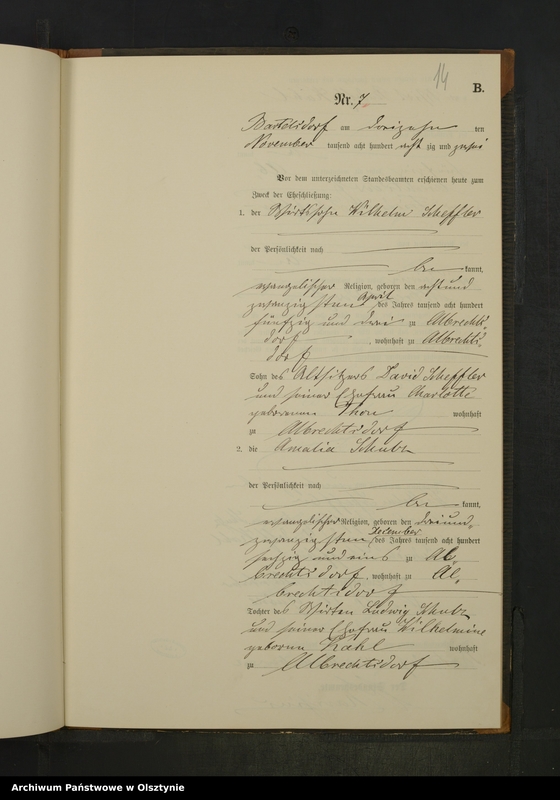 14
B.
Nr. 7
Bartelsdorf am dreizehn ten
November tausend acht hundert acht zig und zwei
Vor dem unterzeichneten Standesbeamten erschienen heute zum
Zweck der Eheschließung:
1. der Wirthssohn Wilhelm Scheffler
der Persönlichkeit nach
be kannt,
evangelischer Religion, geboren den acht und
zwanzigsten April des Jahres tausend acht hundert
fünfzig und drei zu Albrechts-
dorf, wohnhaft zu Albrechts-
dorf
Sohn des Altsitzers David Scheffler
und seiner Ehefrau Charlotte
geborenen wohnhaft
zu Albrechtsdorf
2. die Amalia Schulz
der Persönlichkeit nach
be kannt,
evangelischer Religion, geboren den drei und-
zwanzigsten December des Jahres tausend acht hundert
sechzig und eins zu Al-
brechtsdorf, wohnhaft zu Al-
brechtsdorf
Tochter des Wirten Ludwig Schulz
und seiner Ehefrau Wilhelmine
geboren Kahl wohnhaft
zu Albrechtsdorf
Archiwum Państwowe w Olsztynie